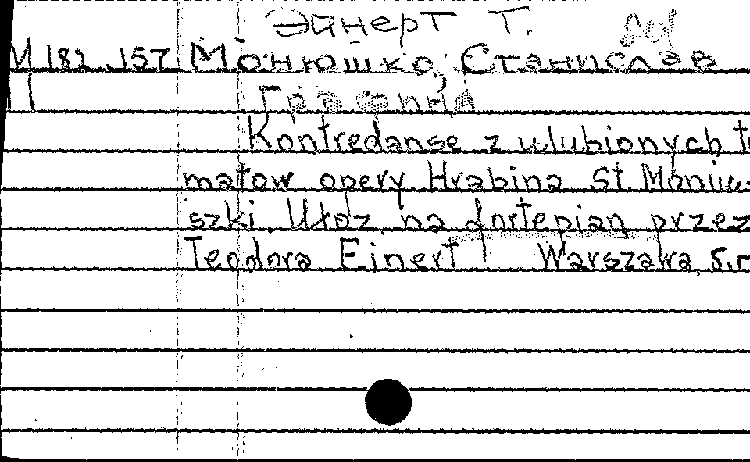 Эйнерт Т.
М 182.157 Монюшко, Станислав
Графиня
Kontredanse z ulubionych te
matow opery Hrabina St. Moniu-
szki. Ułoz. na fortepian przez
Teodora Einert Warszawa s.r